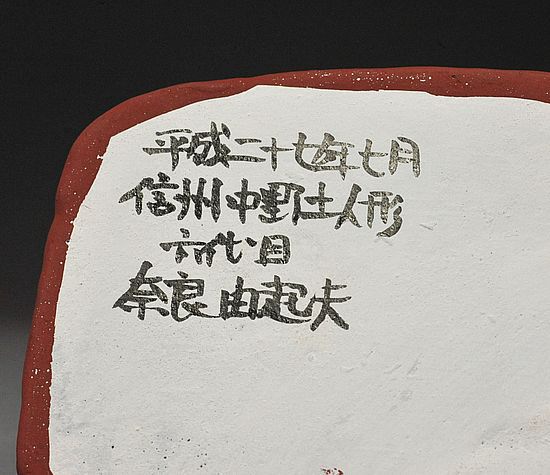 平成二十七年七月
信州中野土人形
六代目
奈良由起夫